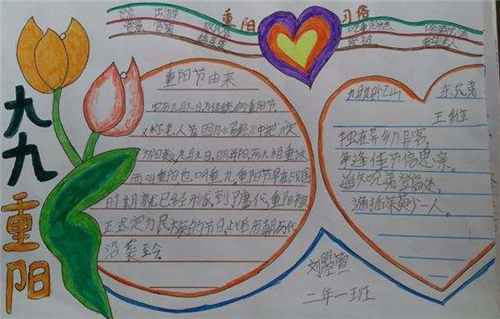 重阳 习俗
九九重阳
重阳节由来
农历九月九日为传统的重阳节
又称老人节因为《易经》中把"六"定
为阳数,九月九日,日月并阳,两九相重,故
而叫重阳,也叫重九,重阳节早在战国
时期就已经形成,到了唐代,重阳被
正式定为民族的节日,此后历朝历代
沿袭至今
九月九日忆山东兄弟
王维
独在异乡为异客,
每逢佳节倍思亲。
遥知兄弟登高处,
遍插茱萸少一人。
二年一班